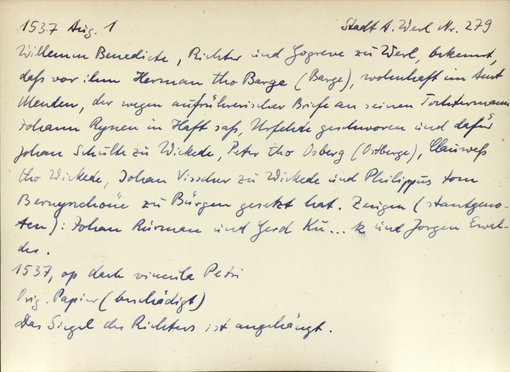 1537 Aug. 1 Stadt A. Werl Nr. 279
Willemm Benedicte, Richter und Gogreve zu Werl, bekennt,
daß vor ihm Herman tho Barge (Barge), wohnhaft im Amt
Menden, der wegen aufrührerischer Briefe an seinen Tochtermann
Johann Rynen in Haft saß, Urfehde geschworen und dafür
Johan Schulte zu Wickede, Peter tho Osberg (Ostberge), Clauweß
tho Wickede, Johan Visscher zu Wickede und Philippus tom
zu Bürgen gesetzt hat. Zeugen (stantgeno-
ten): Johan Rürman und Gerd Ku... k und Jorgen Ewal-
des.
1537, op dach vincula Petri
Orig. Papier (beschädigt)
Das Siegel des Richters ist angehängt.